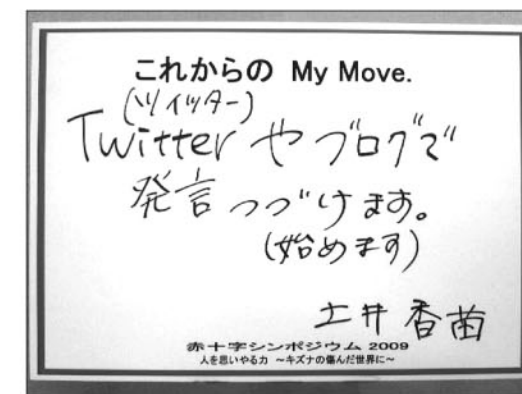 これからの My Move.
(ツイッター)
Twitter や ブログで
発言つづけます。
(始めます)
土井 香苗
赤十字シンポジウム 2009
人を思いやる力 ～キズナの傷んだ世界に～